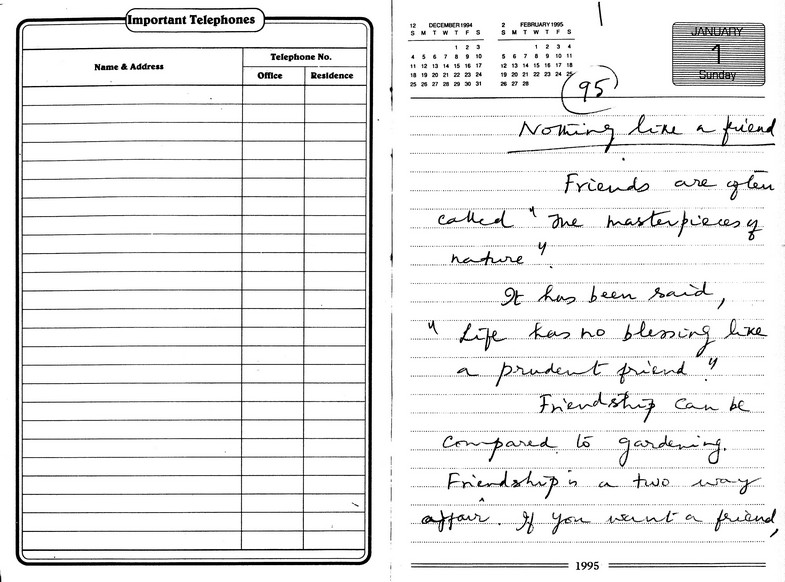 Important Telephones
Name & Address
Telephone No.
Office Residence
12 DECEMBER 1994
S M T W T F S
1 2 3
4 5 6 7 8 9 10
11 12 13 14 15 16 17
18 19 20 21 22 23 24
25 26 27 28 29 30 31
2 FEBRUARY 1995
S M T W T F S
1 2 3 4
5 6 7 8 9 10 11
12 13 14 15 16 17 18
19 20 21 22 23 24 25
26 27 28
JANUARY
1
Sunday
95
Nothing like a friend
Friends are often
called "The masterpieces of
nature".
It has been said,
"Life has no blessing like
a prudent friend."
Friendship can be
compared to gardening.
Friendship is a two way
affair. If you want a friend,
1995